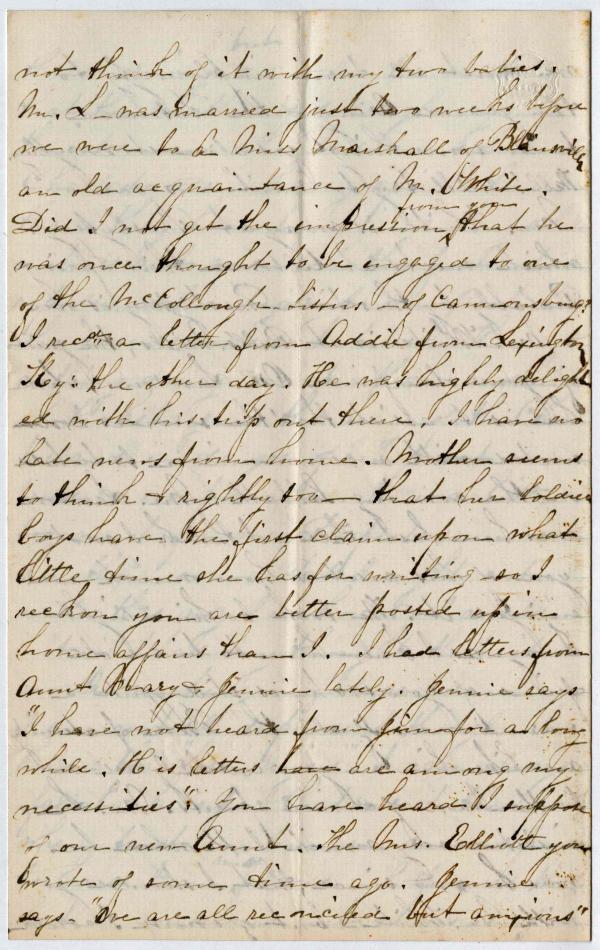 not think of it with my two babies.
Mr. L - was married just two weeks before
we were to a Miss Marshall of Blairsville
an old acquaintance of Mr. White.
from you
Did I not get the impression ^ that he
was once thought to be engaged to one
of the McCollough Sisters - of Cannonsburg?
I recd. a letter from Addie from Lexington
Ky: the other day. He was highly delight
ed with his trip out there. I have no
late news from home. Mother seems
to think & rightly too - that her soldier
boys have the first claim upon what
little time she has for writing - so I
reckon you are better posted up in
home affairs than I. I had letters from
Aunt Mary & Jennie lately. Jennie says
"I have not heard from Jim for a long
while. His letters have are among my
necessities": You have heard I suppose
of our new Aunt. The Mrs. Elliott you
wrote of some time ago. Jennie
says - "we are all reconciled but anxious"